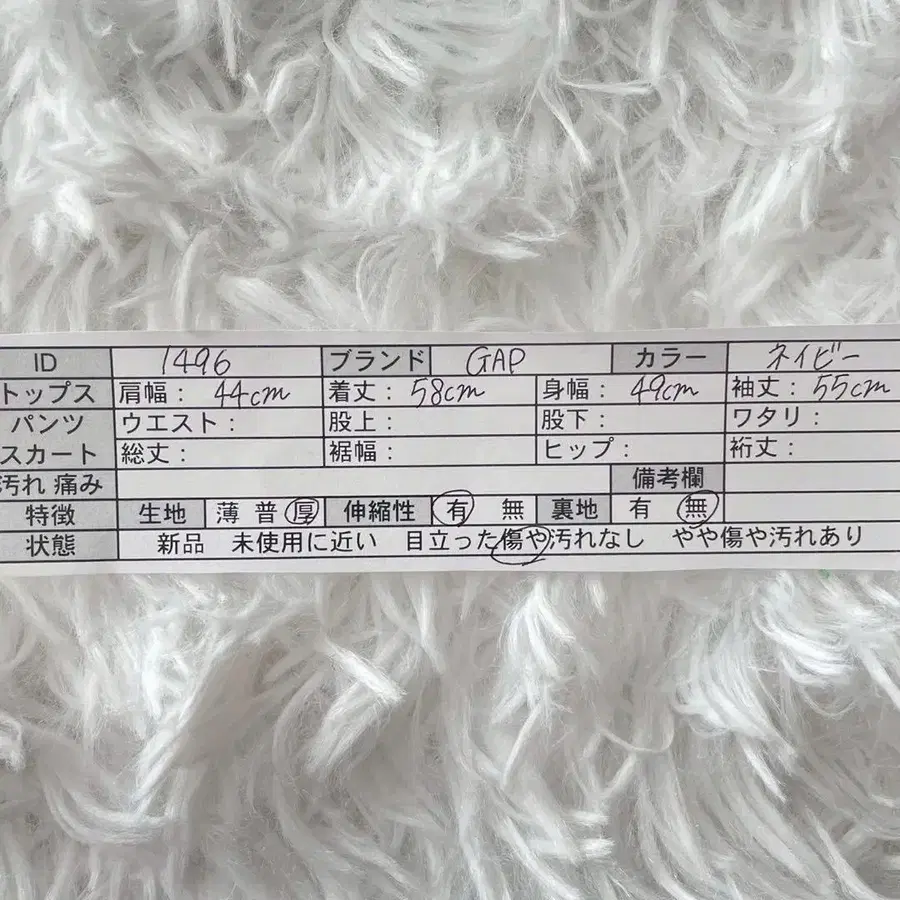 ID 1496 ブランド GAP カラー ネイビー
トップス 肩幅: 44cm 着丈: 58cm 身幅: 49cm 袖丈: 55cm
パンツ ウエスト: 股上: 股下: ワタリ:
スカート 総丈: 裾幅: ヒップ: 裄丈:
汚れ 痛み 備考欄
特徴 生地 薄 普 厚 伸縮性 有 無 裏地 有 無
状態 新品 未使用に近い 目立った傷や汚れなし やや傷や汚れあり